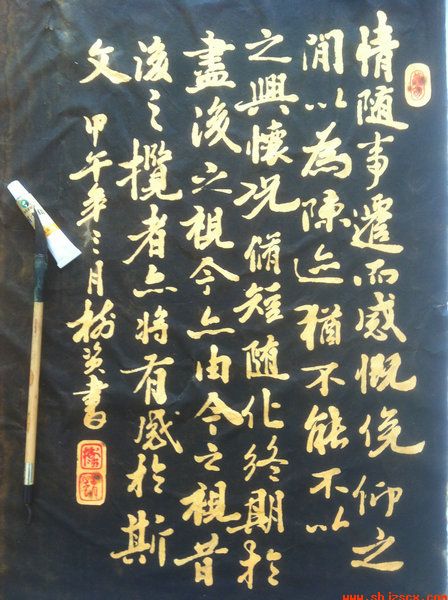 情随事遷而感慨俛仰之
間以為陳迹猶不能不以
之興懷况脩短随化终期於
盡後之視今亦由今之視昔
後之攬者亦将有感於斯
文 甲午年二月树英書
www.shjzscx.com